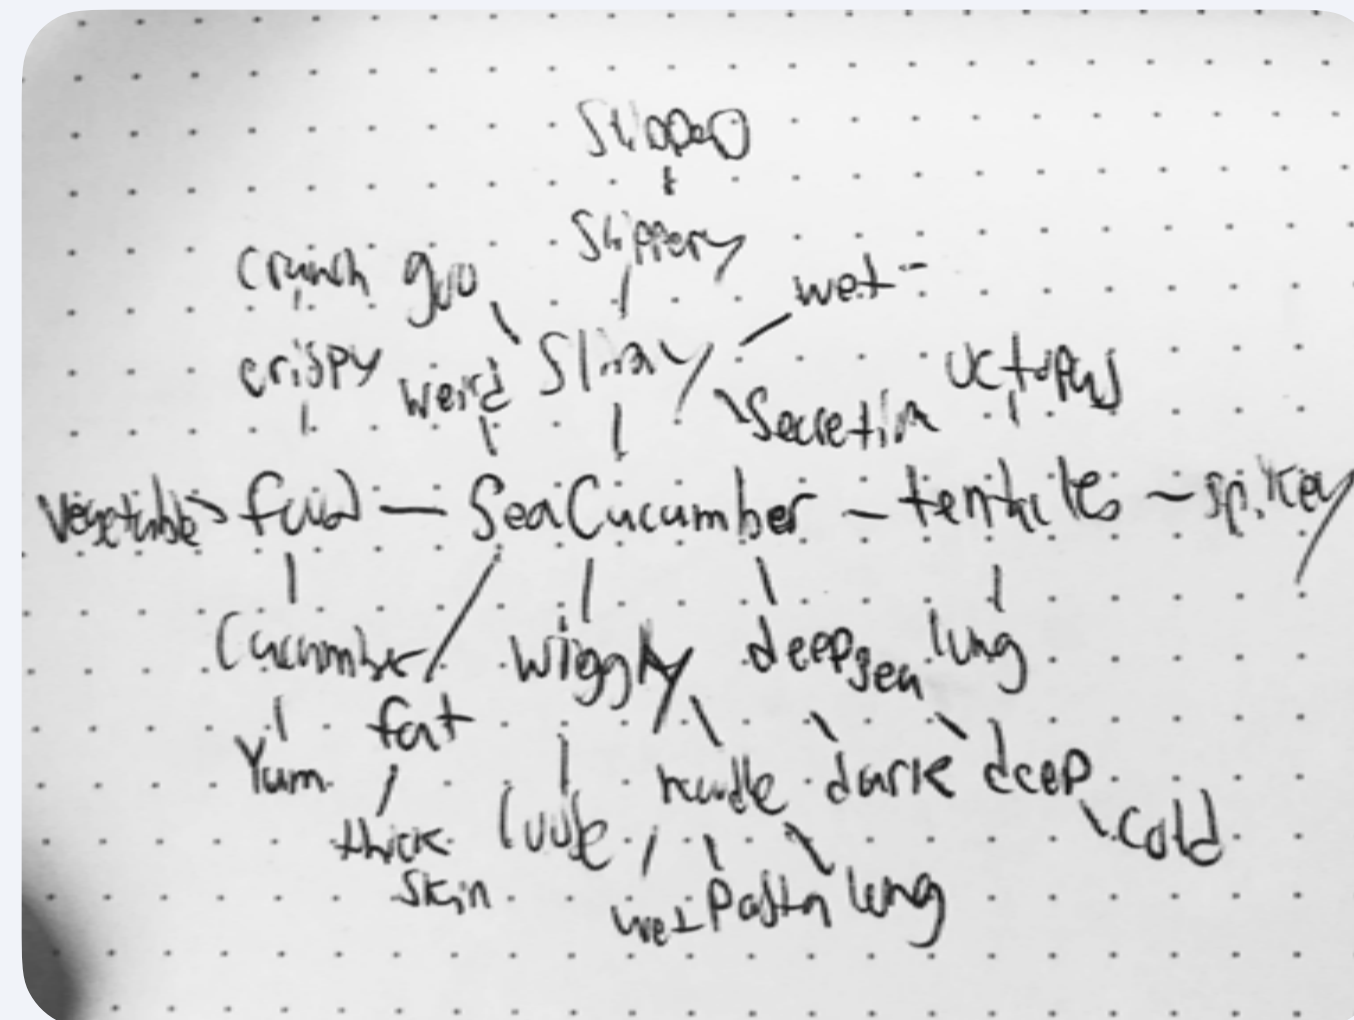 Slipped
Slippery
crunch goo wet
crispy weird Slimy Octopus
Secretin
Vegetable food Sea Cucumber tenticles spikey
Cucumber wiggly deep sea long
Yum fat noodle dark deep
thick loose cold
skin wet Pasta long